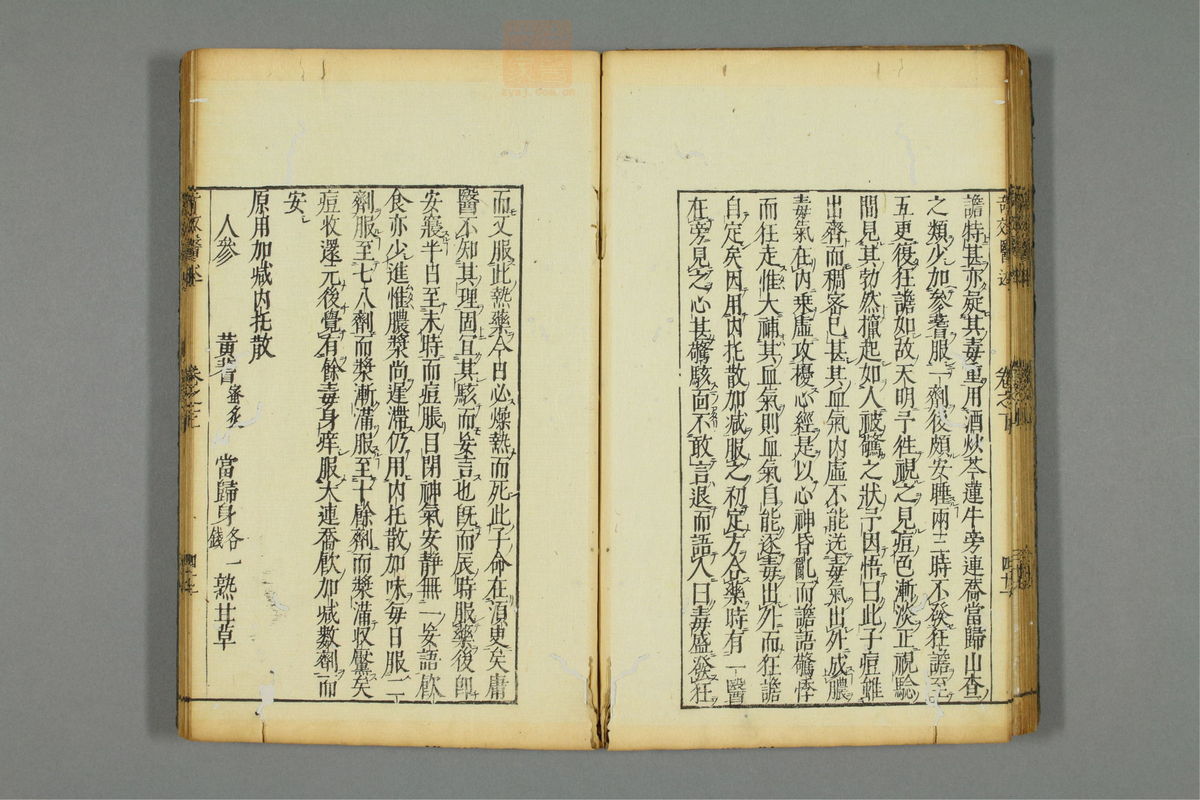 譫特甚亦疑其毒重用酒炒芩蓮牛旁連喬當歸山查
之類少加參耆服一劑後頗安睡兩三時不發狂譫至
五更復狂譫如故天明予徃視之見痘色漸淡正視驗
間見其勃然攛起如人被驚之狀予因悟曰此子痘雖
出齊而稠密已甚其血氣内虛不能送毒氣出外成膿
毒氣在内乗虛攻擾心經是以心神昏亂而譫語驚悸
而狂走惟大補其血氣則血氣自能逐毒出外而狂譫
自定矣因用内托散加减服之初定方合藥時有一醫
在旁見之心甚驚駭面不敢言退而語人曰毒盛發狂
而又服此熱藥今日必燥熱而死此子命在須臾矣庸
醫不知其理固宜其駭而妄言也旣而辰時服藥後卽
安寢半日至未時而痘脹目閉神氣安靜無一妄語飲
食亦少進惟膿漿尚遲滯仍用内托散加味每日服二
劑服至七八劑而漿漸滿服至十餘劑而漿滿收靨矣
痘收還元後覺有餘毒身痒服大連喬飲加减數劑而
安
原用加减内托散
人參 黃耆蜜炙 當歸身各一錢 熟甘草
奇效醫述
卷之下
四十一